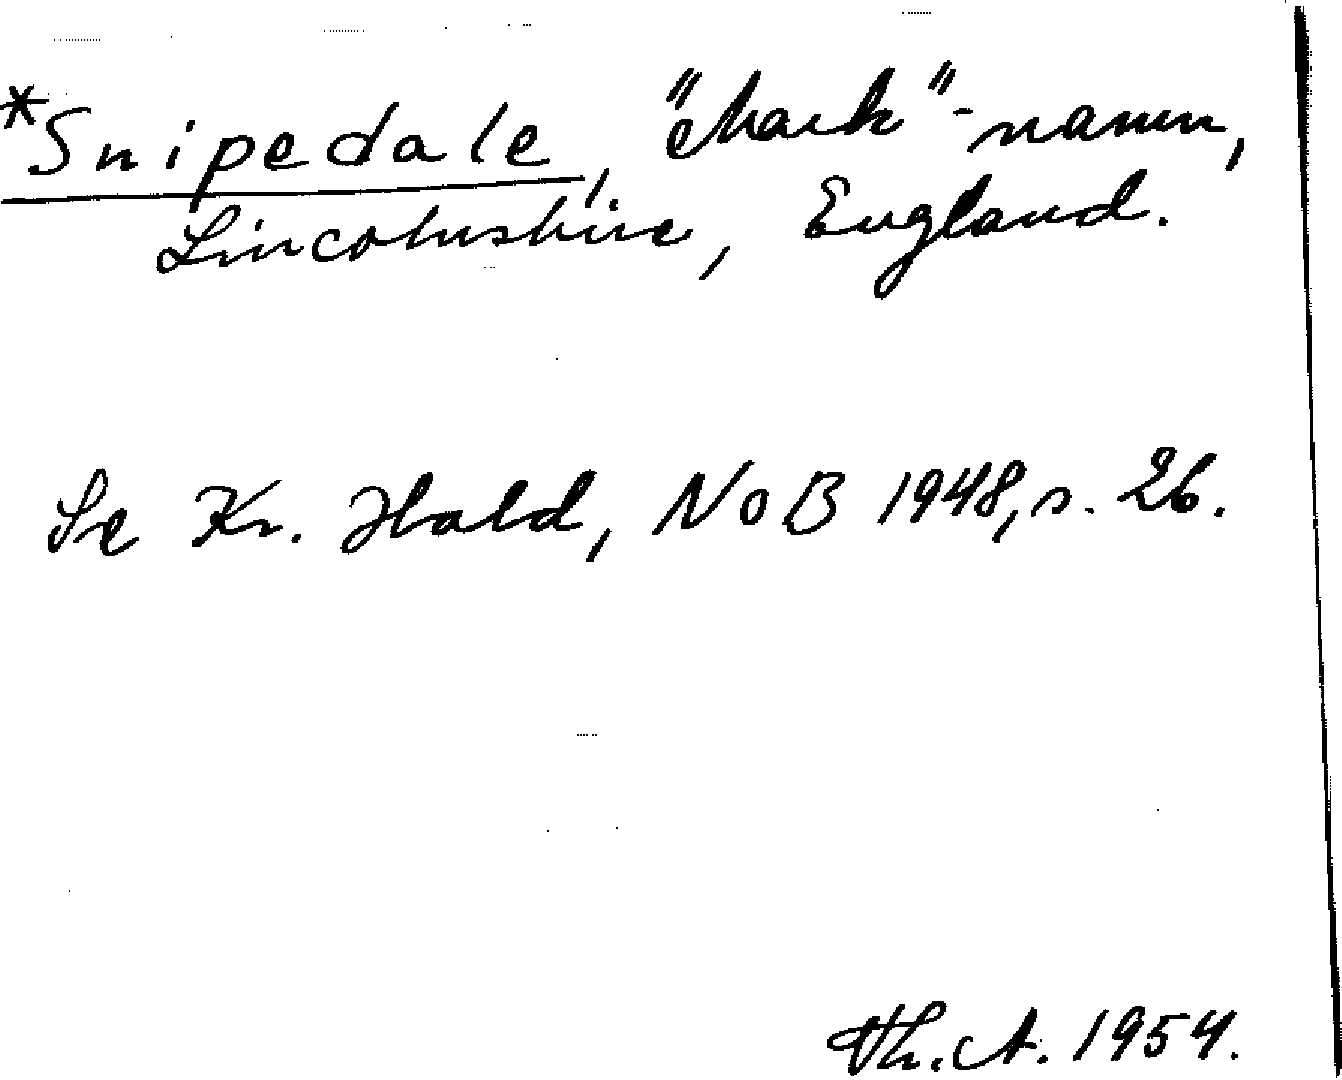 *Snipedale, "Mark"-namn,
Lincolnshire, England.
Se Kr. Hald, NoB 1948, s. 26.
Th. A. 1954.